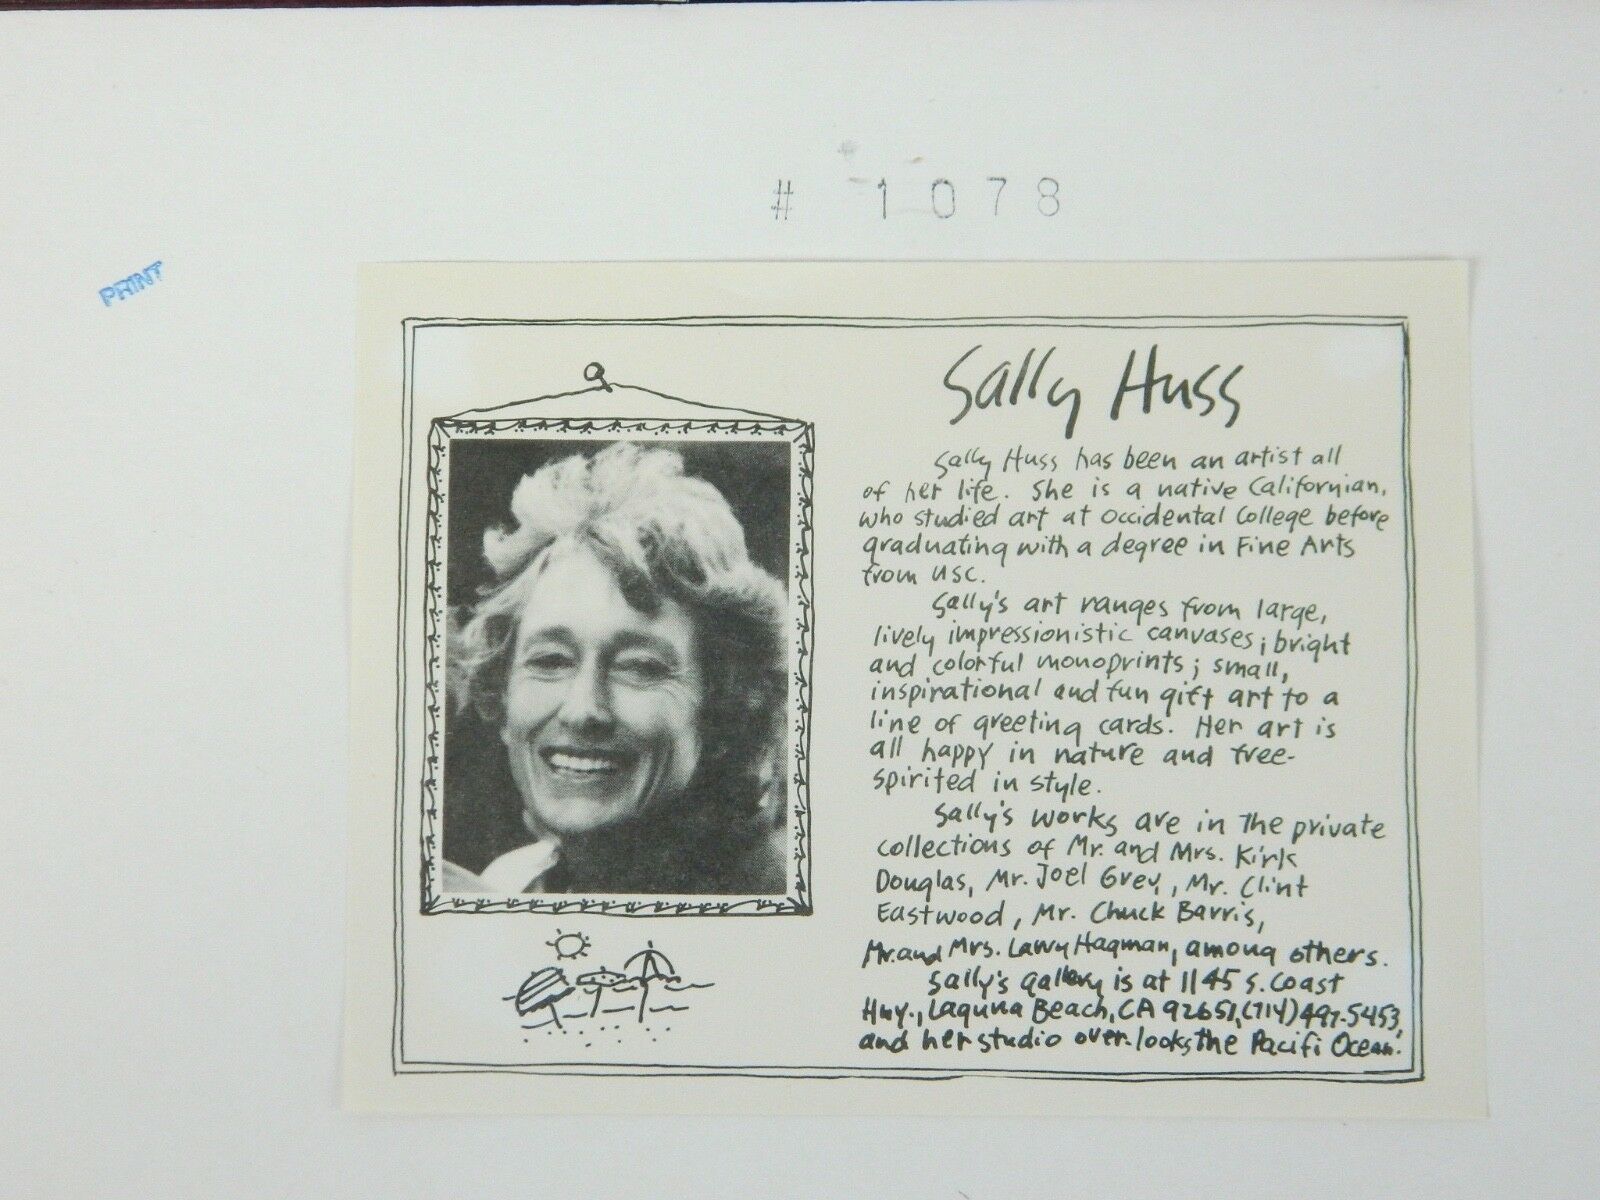 # 1078
PRINT
Sally Huss
Sally Huss has been an artist all
of her life. She is a native Californian,
who studied art at Occidental College before
graduating with a degree in Fine Arts
from USC.
Sally's art ranges from large,
lively impressionistic canvases; bright
and colorful monoprints; small,
inspirational and fun gift art to a
line of greeting cards. Her art is
all happy in nature and free-
spirited in style.
Sally's works are in the private
collections of Mr. and Mrs. Kirk
Douglas, Mr. Joel Grey, Mr. Clint
Eastwood, Mr. Chuck Barris,
Mr. and Mrs. Larry Hagman, among others.
Sally's gallery is at 1145 S. Coast
Hwy., Laguna Beach, CA 92651, (714) 497-5453,
and her studio over-looks the Pacifi Ocean.